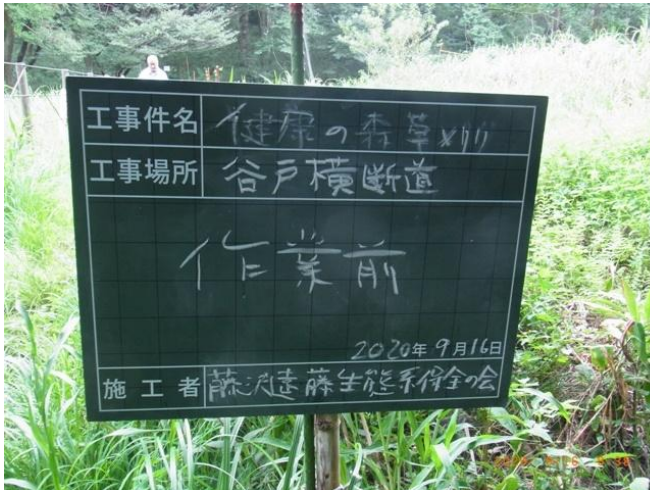 工事件名 健康の森草メリリ
工事場所 谷戸横断道
作業前
2020年9月16日
施工者 藤沢遠藤生態系保全の会